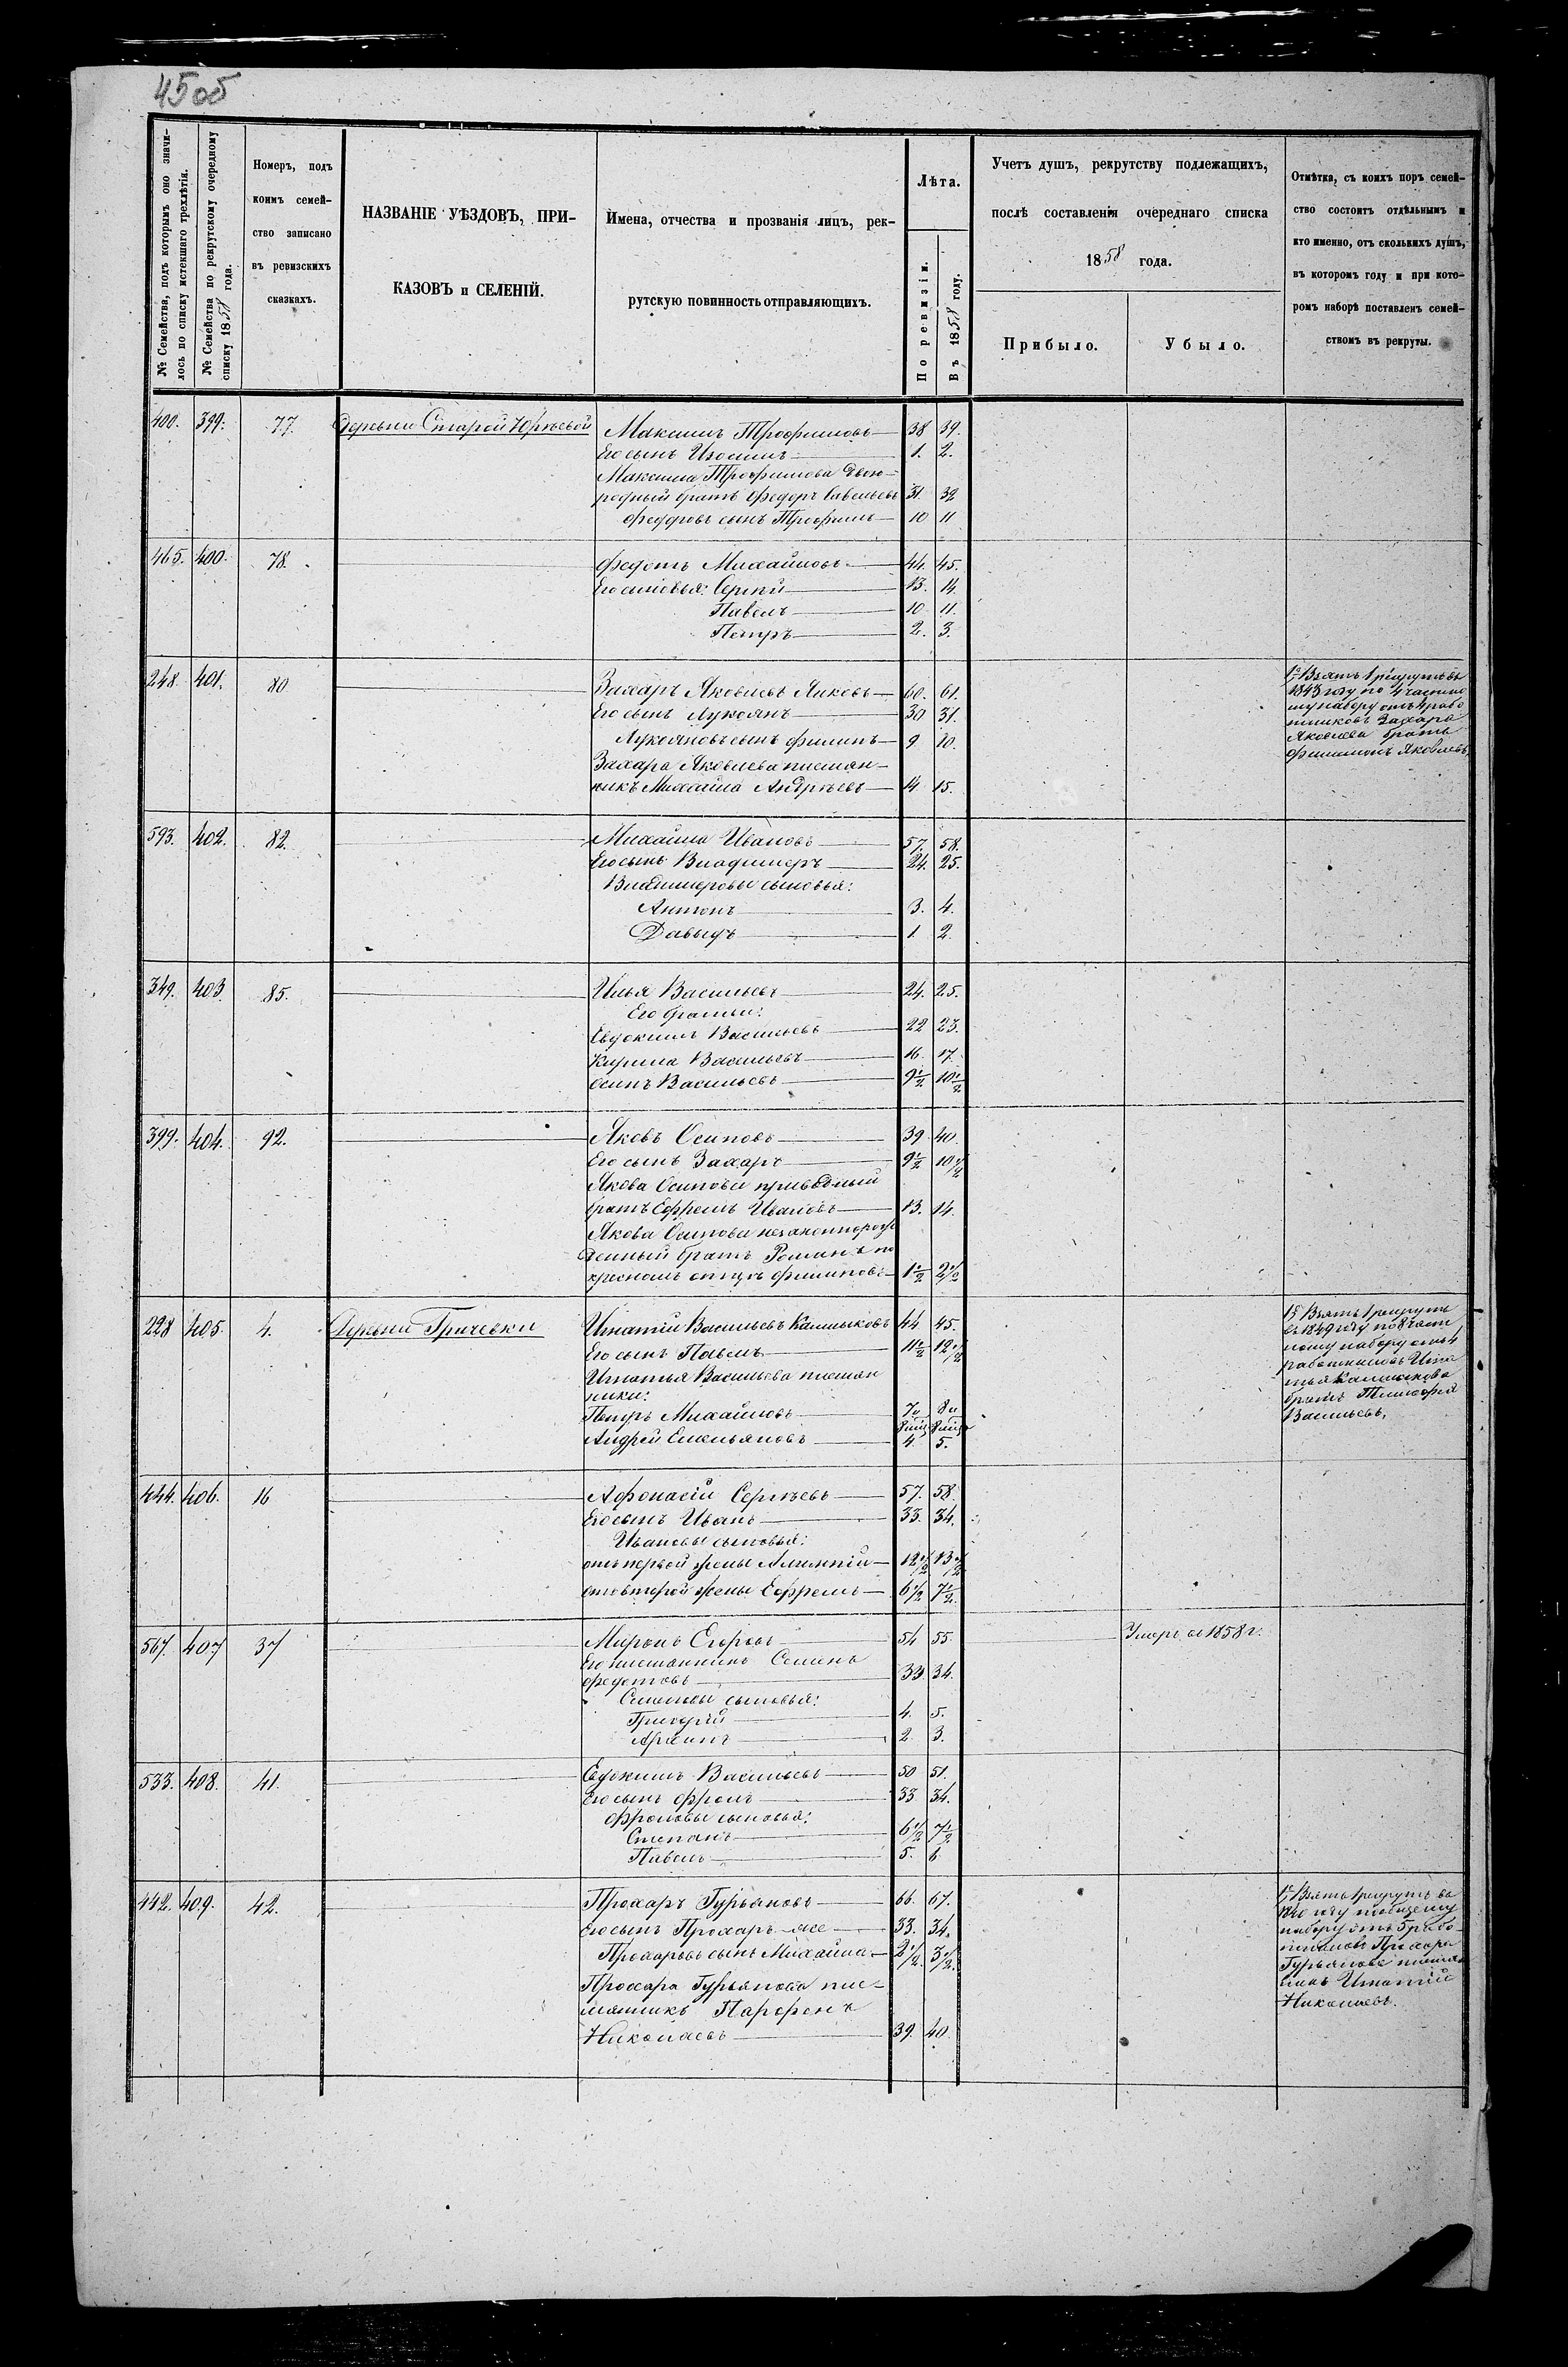 45об
№ Семейства, подъ которымъ оно значи-
лось по списку истекшаго трехлѣтія.
№ Семейства по рекрутскому очередному
списку 1858 года.
Номеръ, подъ
коимъ семей-
ство записано
въ ревизскихъ
сказкахъ.
НАЗВАНІЕ УѢЗДОВЪ, ПРИ-
КАЗОВЪ и СЕЛЕНІЙ.
Имена, отчества и прозванія лицъ, рек-
рутскую повинность отправляющихъ.
Лѣта.
По ревизіи.
Въ 1858 году.
Учетъ душъ, рекрутству подлежащихъ,
послѣ составленія очереднаго списка
1858 года.
Прибыло.
Убыло.
Отмѣтка, съ коихъ поръ семей-
ство состоитъ отдѣльнымъ и
кто именно, отъ сколькихъ душъ,
въ которомъ году и при кото-
ромъ наборѣ поставленъ семей-
ствомъ въ рекруты.
400. 399. 77. Деревни Старой Юрьевой Максимъ Трофимовъ 38 39.
Его сынъ 1. 2.
Максима Трофимова двою-
родный братъ Федоръ Савельевъ 31. 32
Федоровъ сынъ Трофимъ 10 11
465. 400. 78. Федотъ Михайловъ 44. 45.
Его сыновья: Сергѣй 13. 14.
Павелъ 10. 11.
Петръ 2. 3.
248. 401. 80 Захаръ Яковлевъ 60. 61.
Его сынъ Лукоянъ 30 31.
Лукояновъ сынъ Филипъ 9 10.
Захара Яковлева племян-
никъ Михайла Андрѣевъ 14 15.
1й Взятъ 1 рекрутъ въ
1843 году по 4 частно
му набору отъ 4 рабо
тниковъ Захара
Яковлева братъ
Филимонъ Яковлевъ
593. 402. 82. Михайла Ивановъ 57. 58.
Его сынъ Владимеръ 24. 25.
Владимеровы сыновья:
Антонъ 3. 4.
Давыдъ 1. 2
349. 403 85. Илья Васильевъ 24. 25.
Его братья:
Евдокимъ Васильевъ 22 23.
Кирила Васильевъ 16. 17.
Осипъ Васильевъ 9 1/2 10 1/2
399. 404. 92. Яковъ Осиповъ 39 40.
Его сынъ Захаръ 9 1/2 10 1/2
Якова Осипова приводный
братъ Ефремъ Ивановъ 13. 14.
Якова Осипова незаконнорож
денный братъ Романъ по
крестномъ отцѣ Филиповъ 1 1/2 2 1/2
228 405. 4. Деревни Гричевки Игнатій Васильевъ Калмыковъ 44 45.
Его сынъ Павелъ 11 1/2 12 1/2
Игнатья Васильева племян
ники:
Петръ Михайловъ 7 и 8 и
8 мцъ 8 мцъ
Андрей Емельяновъ 4 5.
1й Взятъ 1 рекрутъ
въ 1849 году по 8 част
ному набору отъ 4
работниковъ Игна
тья Калмыкова
братъ Тимофей
Васильевъ.
444. 406. 16 Афонасій Сергѣевъ 57. 58.
Его сынъ Иванъ 33. 34.
Ивановы сыновья:
отъ первой жены 12 1/2 13 1/2
отъ второй жены Ефремъ 6 1/2 7 1/2
567. 407 37 Миронъ Егоровъ 54 55. Умеръ въ 1858 г.
Его племянникъ Семенъ
Федотовъ 33 34.
Семеновы сыновья:
Григорій 4. 5.
2. 3.
533. 408. 41. Евдокимъ Васильевъ 50 51.
Его сынъ Фролъ 33 34.
Фроловы сыновья:
Степанъ 6 1/2 7 1/2
Павелъ 5. 6
442. 409. 42. Прохаръ Гурьяновъ 66. 67.
Его сынъ Прохаръ же 33. 34.
Прохаровъ сынъ Михайла 2 1/2 3 1/2
Прохара Гурьянова пле-
мянникъ Парфенъ
Николаевъ 39. 40.
1й Взятъ 1 рекрутъ въ
1840 году по общему
набору отъ 5 рабо-
тниковъ Прохара
Гурьянова племян
никъ Игнатій
Николаевъ.